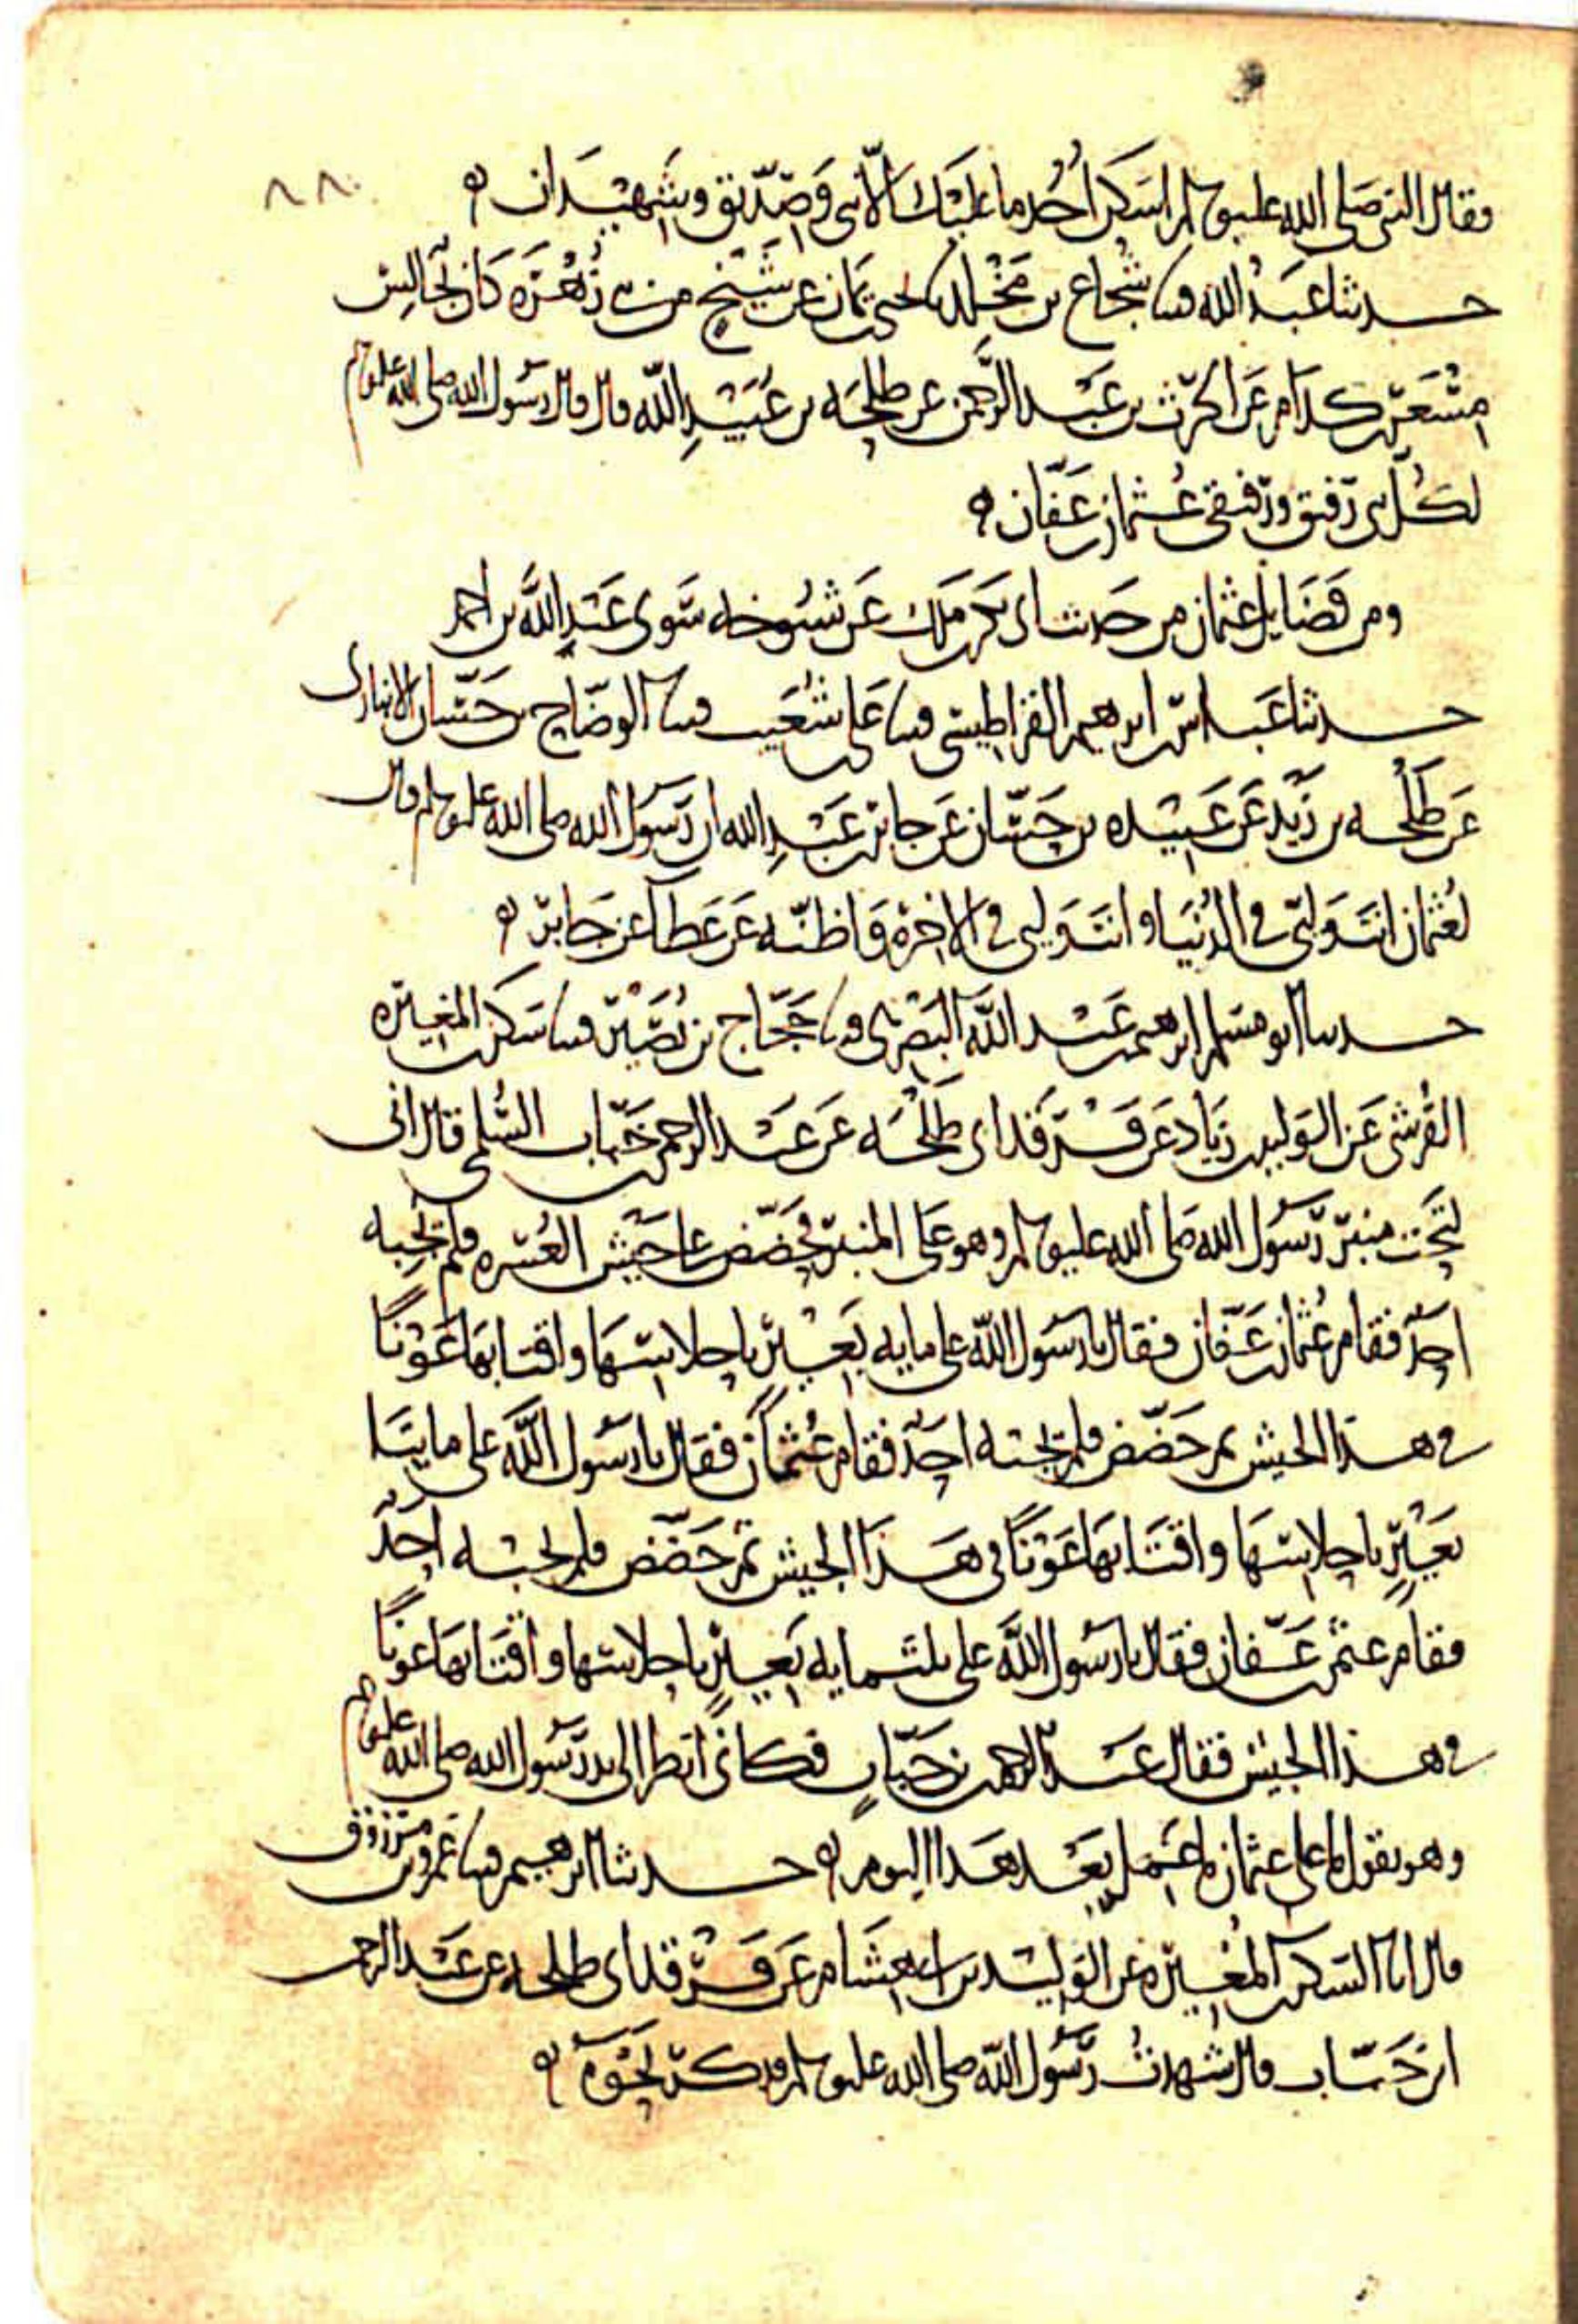 ٨٨
وقال النبي صلى الله عليه وسلم اسكن أحد ما عليك الا نبي وصديق وشهيدان
حدثنا عبد الله قثنا شجاع بن مخلد نا يحيى بن يمان عن شيخ من بني زهرة كان يجالس
مسعر بن كدام عن الحرث بن عبد الرحمن عن طلحه بن عبيد الله قال قال رسول الله صلى الله عليه وسلم
لكل نبي رفيق ورفيقي عثمان بن عفان
ومن فضايل عثمان من حديث ابي بكر بن ملك عن شيوخه سوى عبد الله بن احمد
حدثنا عبد الله بن ابرهيم القراطيسي قثنا علي بن شعيب قثنا الوضاح بن حسان الانباري
عن طلحه بن زيد عن عبيده بن حسان عن جابر بن عبد الله ان رسول الله صلى الله عليه وسلم قال
لعثمان انت وليي في الدنيا وانت وليي في الاخرة واظنه عن عطا عن جابر
حدثنا ابو مسلم ابرهيم بن عبد الله البصري قثنا حجاج بن نصير قثنا سكن بن المغيره
القرشي عن الوليد بن زياد عن فرقد ابي طلحه عن عبد الرحمن بن خباب السلمي قال اني
لتحت منبر رسول الله صلى الله عليه وسلم وهو على المنبر فحضض على جيش العسره فلم يجبه
احد فقام عثمان بن عفان فقال يا رسول الله علي مايه بعير باحلاسها واقتابها عونا
في هذا الجيش ثم حضض فلم يجبه احد فقام عثمان فقال يا رسول الله علي مايتا
بعير باحلاسها واقتابها عونا في هذا الجيش ثم حضض فلم يجبه احد
فقام عثمن بن عفان فقال يا رسول الله علي ثلثمايه بعير باحلاسها واقتابها عونا
في هذا الجيش فقال عبد الرحمن بن خباب فكاني انظر الى يد رسول الله صلى الله عليه وسلم
وهو يقول ما على عثمان ما عمل بعد هذا اليوم حدثنا ابرهيم قثنا عمرو بن مرزوق
قال انا السكن بن المغيره عن الوليد بن ابي هشام عن فرقد ابي طلحه عن عبد الرحمن
بن خباب قال شهدت رسول الله صلى الله عليه وسلم فذكر نحوه